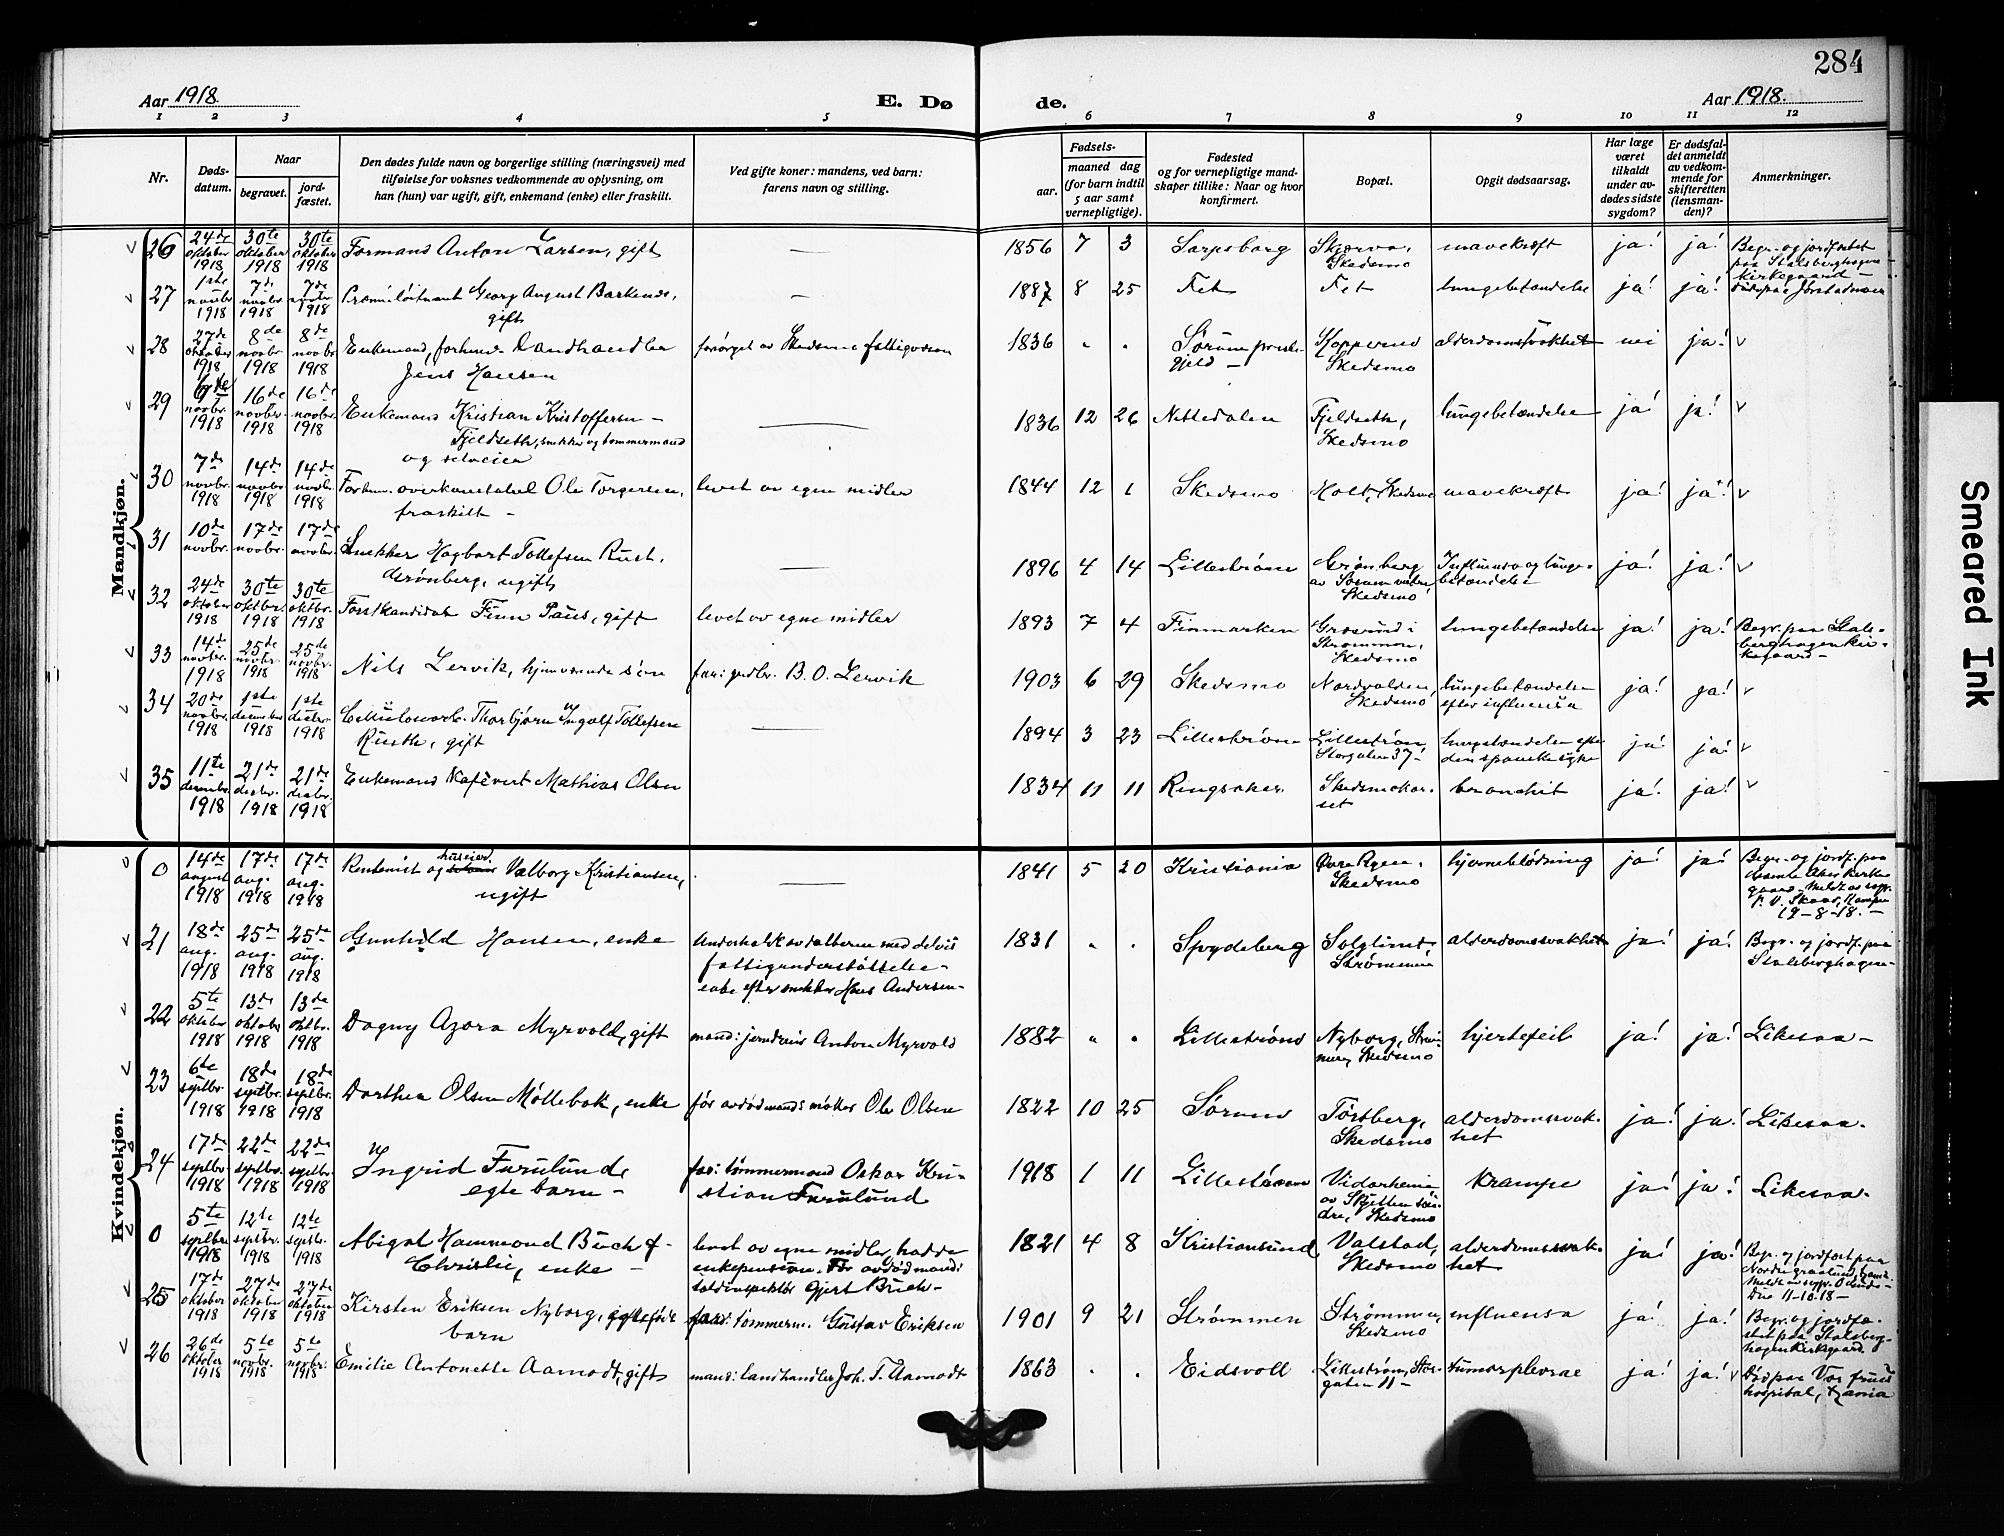 284
Aar 1918. E. Dø de. Aar 1918.
1 2 3 4 5 6 7 8 9 10 11 12
Nr.
Døds-
datum.
Naar
begravet.
jord-
fæstet.
Den dødes fulde navn og borgerlige stilling (næringsvei) med
tilføielse for voksnes vedkommende av oplysning, om
han (hun) var ugift, gift, enkemand (enke) eller fraskilt.
Ved gifte koner: mandens, ved barn:
farens navn og stilling.
Fødsels-
aar.
maaned dag
(for barn indtil
5 aar samt
vernepligtige).
Fødested
og for vernepligtige mand-
skaper tillike: Naar og hvor
konfirmert.
Bopæl.
Opgit dødsaarsag.
Har læge
været
tilkaldt
under av-
dødes sidste
sygdom?
Er dødsfal-
det anmeldt
av vedkom-
mende for
skifteretten
(lensman-
den)?
Anmerkninger.
Mandkjøn.
26 24de oktober 1918 30te oktober 1918 30te oktober 1918 Formand Anton Larsen, gift — 1856 7 3 Sarpsborg Skjærva, Skedsmo mavekræft ja! ja! Begr. og jordfæstet paa Stalsberghagens kirkegaard —
27 1ste novbr 1918 7de novbr 1918 7de novbr 1918 Premierløitnant Georg August Barkenæs, gift — 1887 8 25 Fet Fet lungebetændelse ja! ja! død paa Jørstadmoen
28 27de oktober 1918 8de novbr. 1918 8de novbr 1918 Enkemand, forhenv. Landhandler Jens Hansen forsørget av Skedsmo fattigvæsen 1836 " " Sørum præste-gjeld — Kopperud Skedsmo alderdomssvakhet nei ja! v
29 novbr. 1918 16de novbr. 1918 16de novbr. 1918 Enkemand Kristian Kristoffersen — Fjeldseth, snekker og tømmermand og selveier — 1836 12 26 Nittedalen Fjeldseth, Skedsmo lungebetændelse ja! ja! v
30 7de novbr. 1918 14de novbr 1918 14de novbr. 1918 Forhenv. overkonstabel Ole Torgersen, fraskilt — levet av egne midler 1844 12 1 Skedsmo Holt, Skedsmo mavekræft ja! ja! v
31 10de novbr. 17de novbr. 17de novbr. Snekker Hagbart Tollefsen Rust, Grønberg, ugift — 1896 4 14 Lillestrøm Grønberg av Sørum vestre Skedsmo Influensa og lunge-betændelse ja! ja! v
32 24de oktober 1918 30te oktbr. 1918 30te oktbr. 1918 Forstkandidat Finn Paus, gift levet av egne midler 1893 7 4 Finmarken Grosund i Strømmen, Skedsmo lungebetændelse ja! ja! Begr. paa Stals-berghagen kir-kegaard —
33 14de novbr. 1918 25de novbr. 1918 25de novbr. 1918 Nils Lervik, hjemmeværende søn far: grdbr. B. O. Lervik 1903 6 29 Skedsmo Nordvolden, Skedsmo lungebetændelse efter influensa ja! ja! v
34 20de novbr. 1918 1ste december 1918 1ste decbr. 1918 Cellulosearb. Thorbjørn Ingolf Tollefsen Rusth, gift — 1894 3 23 Lillestrøm Lillestrøm Storgaten 37 — lungebetændelse efter den spanske syke ja! ja! v
35 11te decembr. 1918 21de decbr. 1918 21de decbr. 1918 Enkemand Kafévert Mathias Olsen 1834 11 11 Ringsaker Skedsmokor-set bronchit ja! ja! v
Kvindekjøn.
0 14de august 1918 17de aug. 1918 17de aug. 1918 Rentenist og huseier Valborg Kristiansen, ugift — 1841 5 20 Kristiania Øvre Ryen, Skedsmo hjerneblødning ja! ja! Begr. og jordf. paa Gamle Aker kirkegaard. Meldt av sogr. P. V. Skaar, Hamar 19-8-18. —
21 18de aug. 1918 25de aug. 1918 25de aug. 1918 Gunhild Hansen, enke Underholdt av døtrene med delvis fattigunderstøttelse — enke efter snekker Hans Andersen — 1831 " " Spydeberg Solglimt Strømmen alderdomssvakhet ja! ja! Begr. og jordf. paa Stalsberghagen —
22 5te oktober 1918 13de oktober 1918 13de oktbr. 1918 Dagny Azora Myrvold, gift mand: jerndreier Anton Myrvold 1882 " " Lillestrøm Nyborg, Strøm-men, Skedsmo hjertefeil ja! ja! Likesaa —
23 6te septbr. 1918 18de septbr. 1918 18de septbr. 1918 Dorthea Olsen Møllebak, enke før avdød mand: møller Ole Olsen 1822 10 25 Sørum Torsberg, Skedsmo alderdomssvak-het ja! ja! Likesaa.
24 17de septbr. 1918 22de septbr. 1918 22de septbr. 1918 Ingrid Furulund, egte barn — far: tømmermand Oskar Kri-stian Furulund 1918 1 11 Lillestrøm Vidarheim av Skjetten søn-dre, Skedsmo krampe ja! ja! Likesaa.
0 5te septbr. 1918 12te septbr. 1918 12te septbr. 1918 Abigal Hammond Buch f. Christie, enke — levet av egne midler, hadde enkepension. Før avdød mand: toldinspektør Gjert Buch — 1821 4 8 Kristiansund Valstad, Skedsmo alderdomssvak-het ja! ja! Begr. og jordfæst paa Nordre gravlund Kr.ania Meldt av sogr. Due 11-10-18 —
25 17de oktober 1918 27de oktober 1918 27de oktober 1918 Kirsten Eriksen Nyborg, egtefødt barn far: tømmerm. Gustav Eriksen 1901 9 21 Strømmen Strømmen, Skedsmo influensa ja! ja! Begr. og jordfæ-stet paa Stalsberg-hagen kirkegaard
26 26de oktober 1918 5te novbr. 1918 5te novbr. 1918 Emilie Antonette Aamodt, gift mand: landhandler Joh. T. Aamodt 1863 " Eidsvoll Lillestrøm, Stor-gaten 11 — tumor plevrae ja! ja! v Død paa Vor frues hospital, Kr.ania
Smeared Ink